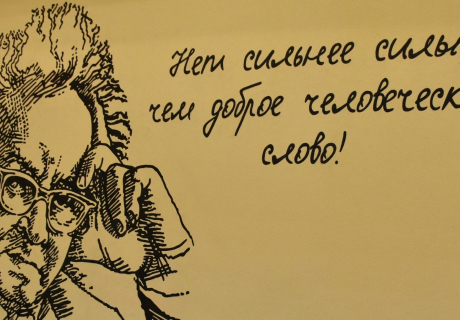 Нет сильнее силы
чем доброе человеческ
слово!